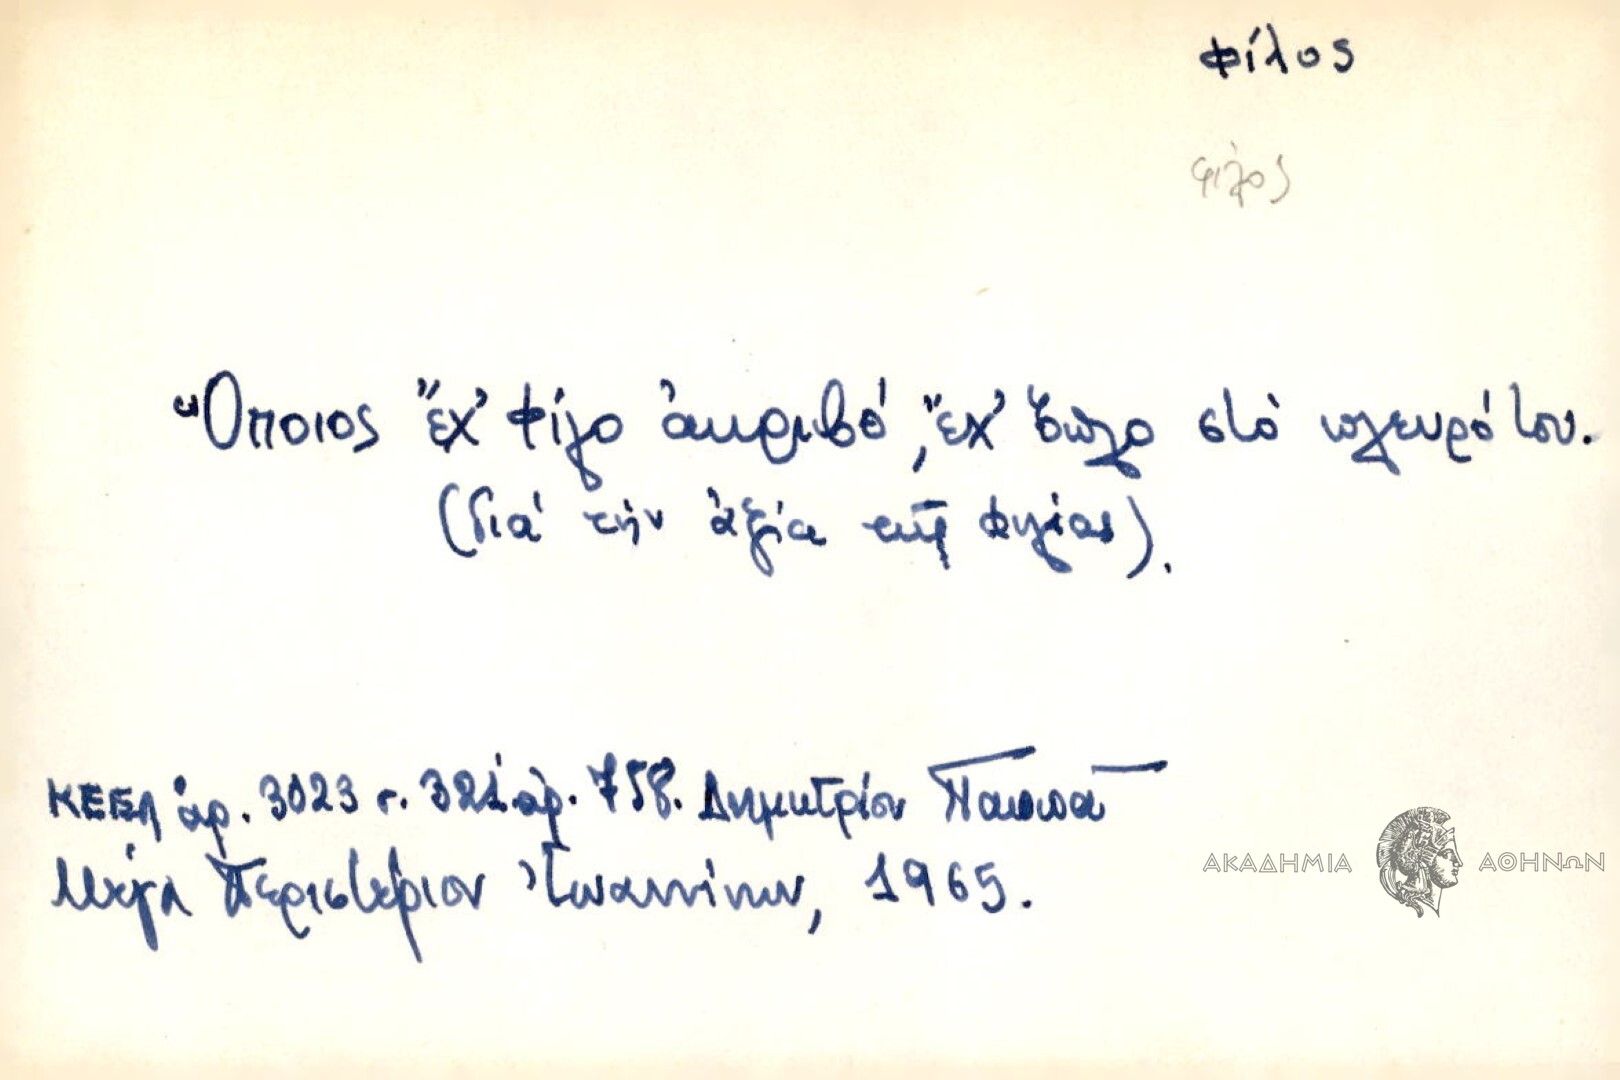 φίλος
φίλος
Ὅποιος ἔχ' φίλο ἀκριβό, ἔχ' ὅπλο στὸ πλευρό του.
(διά τὴν ἀξία τῆς φιλίας).
ΚΕΕΛ ἀρ. 3023 σ. 321 ἀρ. 758. Δημητρίου Παππᾶ
Μέγα Περιστέριον Ἰωαννίνων, 1965.
ΑΚΑΔΗΜΙΑ ΑΘΗΝΩΝ